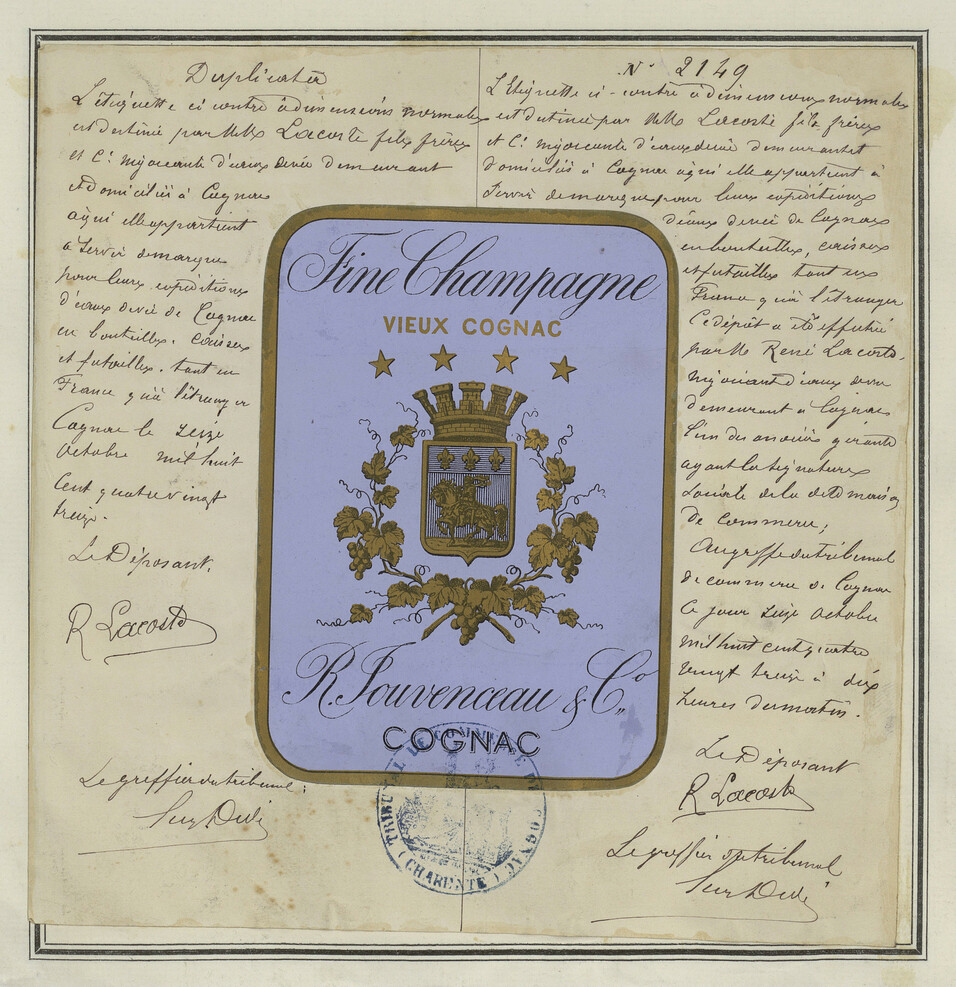 Duplicata
L'étiquette ci contre à dimensions normales
est destinée par MM Lacoste fils frères
et Cie négociants d'eaux de vie demeurant
et domiciliés à Cognac
à qui elle appartient
à servir de marque
pour leurs expéditions
d'eaux de vie de Cognac
en bouteilles, caisses
et futailles, tant en
France qu'à l'étranger
Cognac le seize
octobre mil huit
cent quatre vingt
treize.
Le Déposant,
R Lacoste
Le greffier du tribunal,
N° 2149
L'étiquette ci-contre à dimensions normales
est destinée par MM Lacoste fils frères
et Cie négociants d'eaux de vie demeurant et
domiciliés à Cognac à qui elle appartient à
servir de marque pour leurs expéditions
d'eaux de vie de Cognac
en bouteilles, caisses
et futailles tant en
France qu'à l'étranger
Ce dépôt a été effectué
par M René Lacoste,
négociant d'eaux de vie
demeurant à Cognac
l'un des associés gérants
ayant la signature
sociale de la dite maison
de commerce,
Au greffe du tribunal
de commerce de Cognac
ce jour seize octobre
mil huit cent quatre
vingt treize à dix
heures du matin.
Le Déposant
R Lacoste
Le greffier du tribunal
Fine Champagne
VIEUX COGNAC
R. Jouvenceau & Co
COGNAC
TRIBUNAL DE COMMERCE DE COGNAC
(CHARENTE)